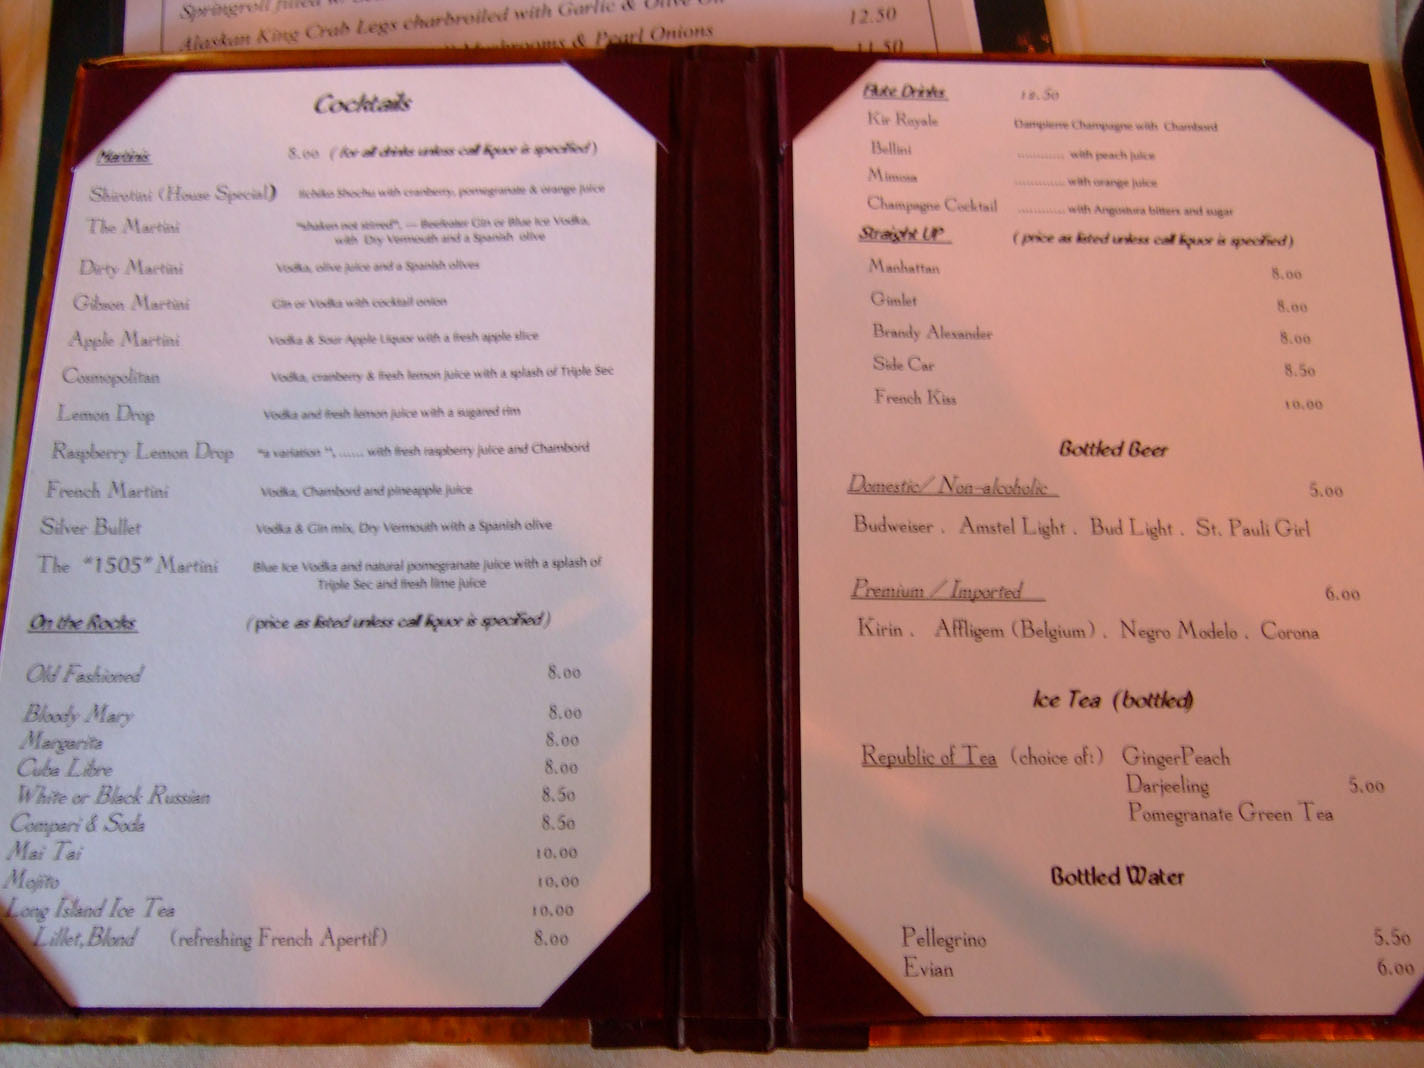 Springroll filled
Alaskan King Crab Legs charbroiled with Garlic & Olive Oil 12.50
Mushrooms & Pearl Onions 11.50
Cocktails
Martinis 8.00 (for all drinks unless call liquor is specified)
Shirotini (House Special) Iichiko Shochu with cranberry, pomegranate & orange juice
The Martini "shaken not stirred", --- Beefeater Gin or Blue Ice Vodka,
with Dry Vermouth and a Spanish olive
Dirty Martini Vodka, olive juice and a Spanish olives
Gibson Martini Gin or Vodka with cocktail onion
Apple Martini Vodka & Sour Apple Liquor with a fresh apple slice
Cosmopolitan Vodka, cranberry & fresh lemon juice with a splash of Triple Sec
Lemon Drop Vodka and fresh lemon juice with a sugared rim
Raspberry Lemon Drop "a variation ", ...... with fresh raspberry juice and Chambord
French Martini Vodka, Chambord and pineapple juice
Silver Bullet Vodka & Gin mix, Dry Vermouth with a Spanish olive
The "1505" Martini Blue Ice Vodka and natural pomegranate juice with a splash of
Triple Sec and fresh lime juice
On the Rocks (price as listed unless call liquor is specified)
Old Fashioned 8.00
Bloody Mary 8.00
Margarita 8.00
Cuba Libre 8.00
White or Black Russian 8.50
Compari & Soda 8.50
Mai Tai 10.00
Mojito 10.00
Long Island Ice Tea 10.00
Lillet, Blond (refreshing French Apertif) 8.00
Flute Drinks 12.50
Kir Royale Dampierre Champagne with Chambord
Bellini ............ with peach juice
Mimosa ............. with orange juice
Champagne Cocktail ............ with Angostura bitters and sugar
Straight UP (price as listed unless call liquor is specified)
Manhattan 8.00
Gimlet 8.00
Brandy Alexander 8.00
Side Car 8.50
French Kiss 10.00
Bottled Beer
Domestic/ Non-alcoholic 5.00
Budweiser . Amstel Light . Bud Light . St. Pauli Girl
Premium / Imported 6.00
Kirin . Affligem (Belgium) . Negro Modelo . Corona
Ice Tea (bottled)
Republic of Tea (choice of:) GingerPeach
Darjeeling 5.00
Pomegranate Green Tea
Bottled Water
Pellegrino 5.50
Evian 6.00